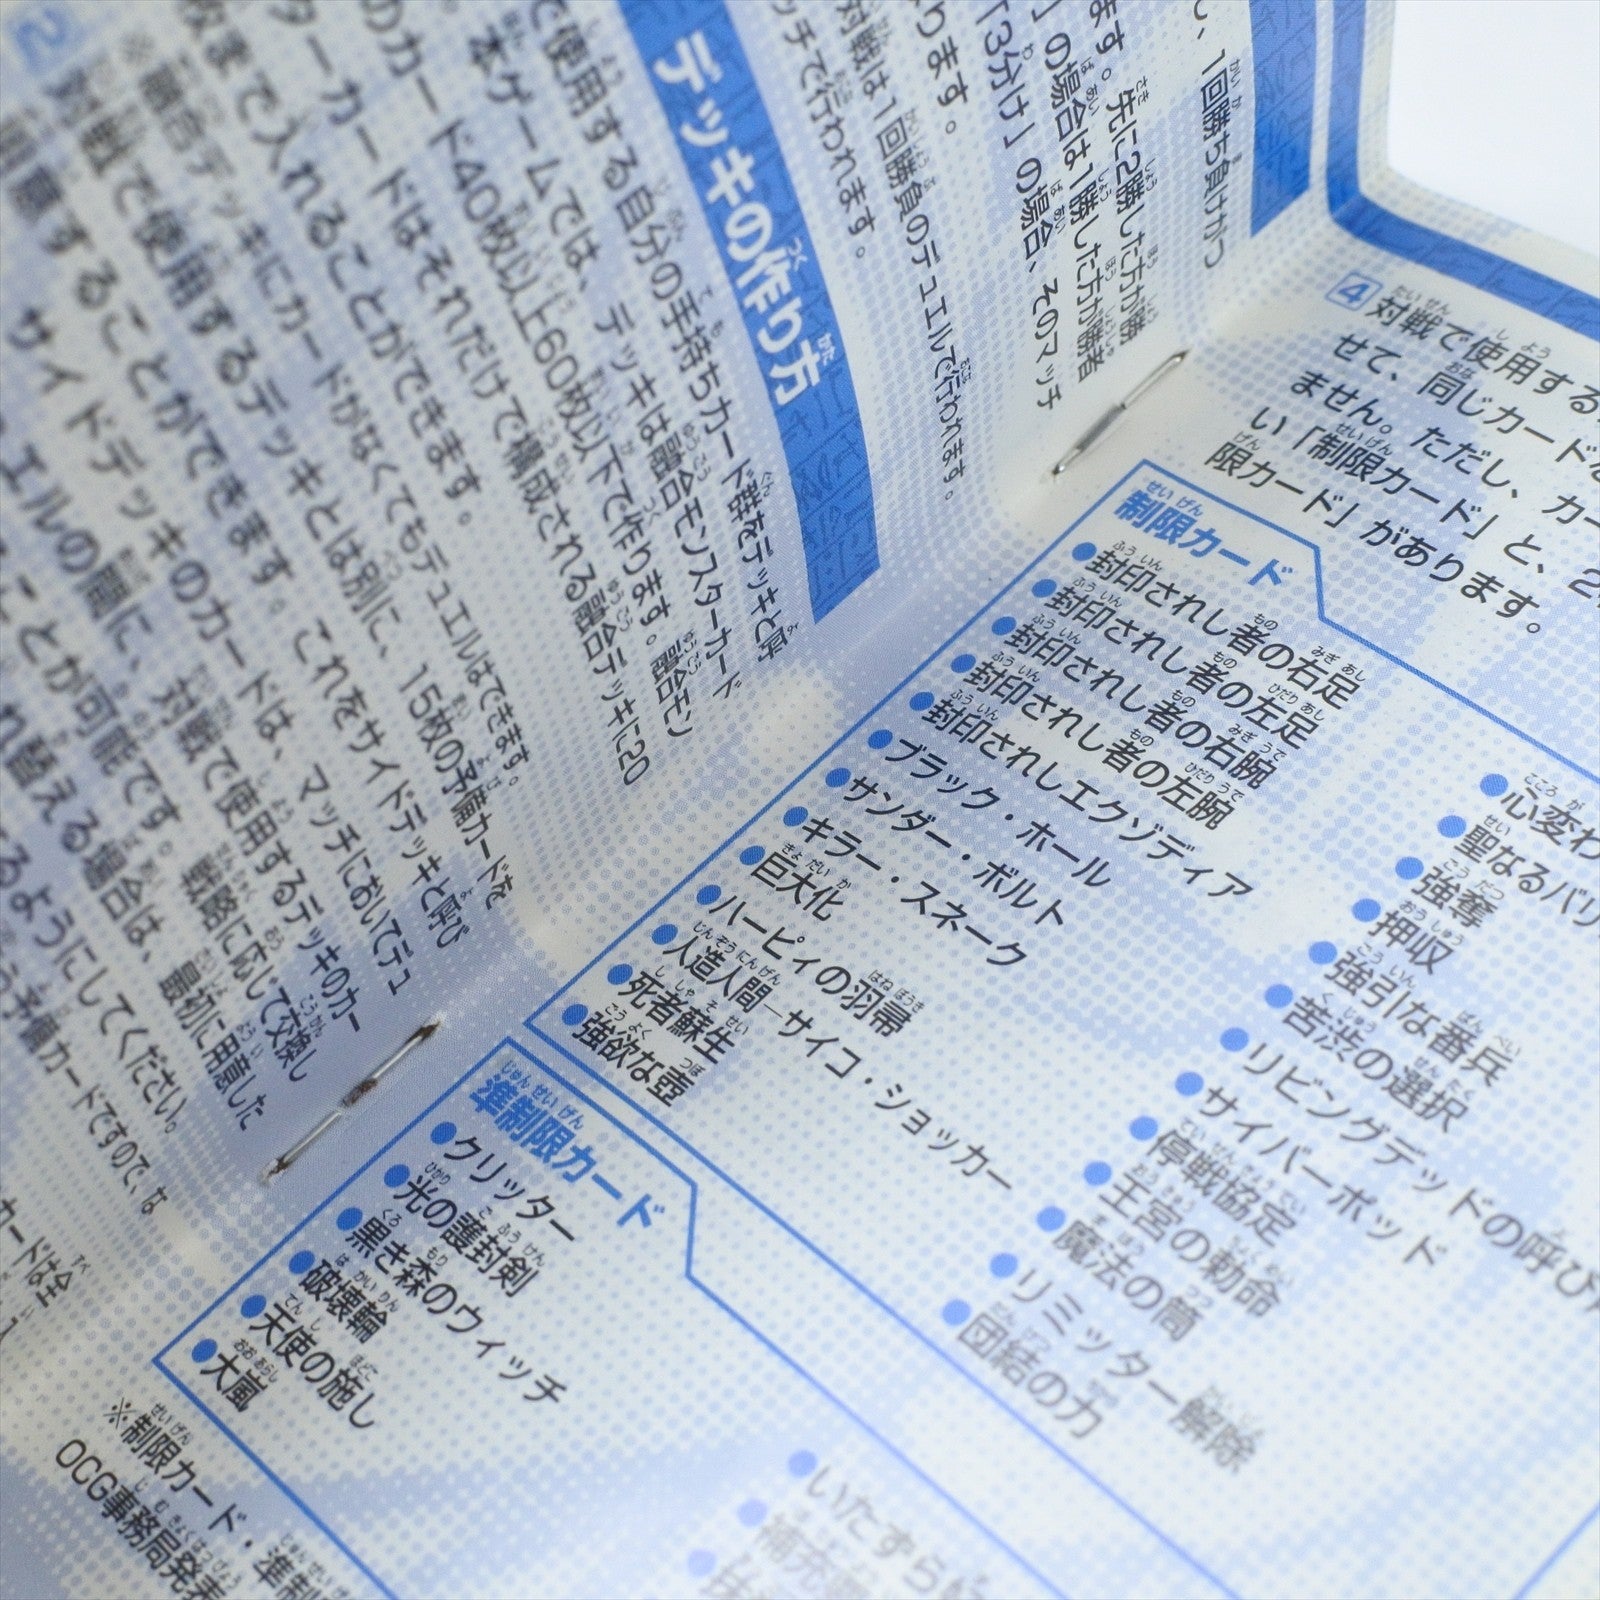 し、1回勝ち負けがつ
ます。先に2勝した方が勝
」の場合は1勝した方が勝者
「3分け」の場合、そのマッチ
ります。
対戦は1回勝負のデュエルで行われます。
ッチで行われます。
デッキの作り方
で使用する自分の手持ちカード群をデッキと呼
本ゲームでは、デッキは融合モンスターカード
のカード40枚以上60枚以下で作ります。融合モン
ターカードはそれだけで構成される融合デッキに20
枚まで入れることができます。
※融合デッキにカードがなくてもデュエルはできます。
2 対戦で使用するデッキとは別に、15枚の予備カードを
用意することができます。これをサイドデッキと呼び
サイドデッキのカードは、マッチにおいてデュ
エルの間に、対戦で使用するデッキのカー
ことが可能です。戦略に応じて交換し
れ替える場合は、最初に用意した
るようにしてください。
う予備カードですので、な
カードは全
4 対戦で使用する
せて、同じカードを
ません。ただし、カー
い「制限カード」と、2
限カード」があります。
制限カード
●封印されし者の右足
●封印されし者の左足
●封印されし者の右腕
●封印されし者の左腕
●封印されしエクゾディア
●ブラック・ホール
●サンダー・ボルト
●キラー・スネーク
●巨大化
●ハーピィの羽帚
●人造人間―サイコ・ショッカー
●死者蘇生
●強欲な壺
●心変わ
●聖なるバリ
●強奪
●押収
●強引な番兵
●苦渋の選択
●リビングデッドの呼び
●サイバーポッド
●停戦協定
●王宮の勅命
●魔法の筒
●リミッター解除
●団結の力
準制限カード
●クリッター
●光の護封剣
●黒き森のウィッチ
●破壊輪
●天使の施し
●大嵐
●いたずら
●補充
※制限カード・準制
OCG事務局発表